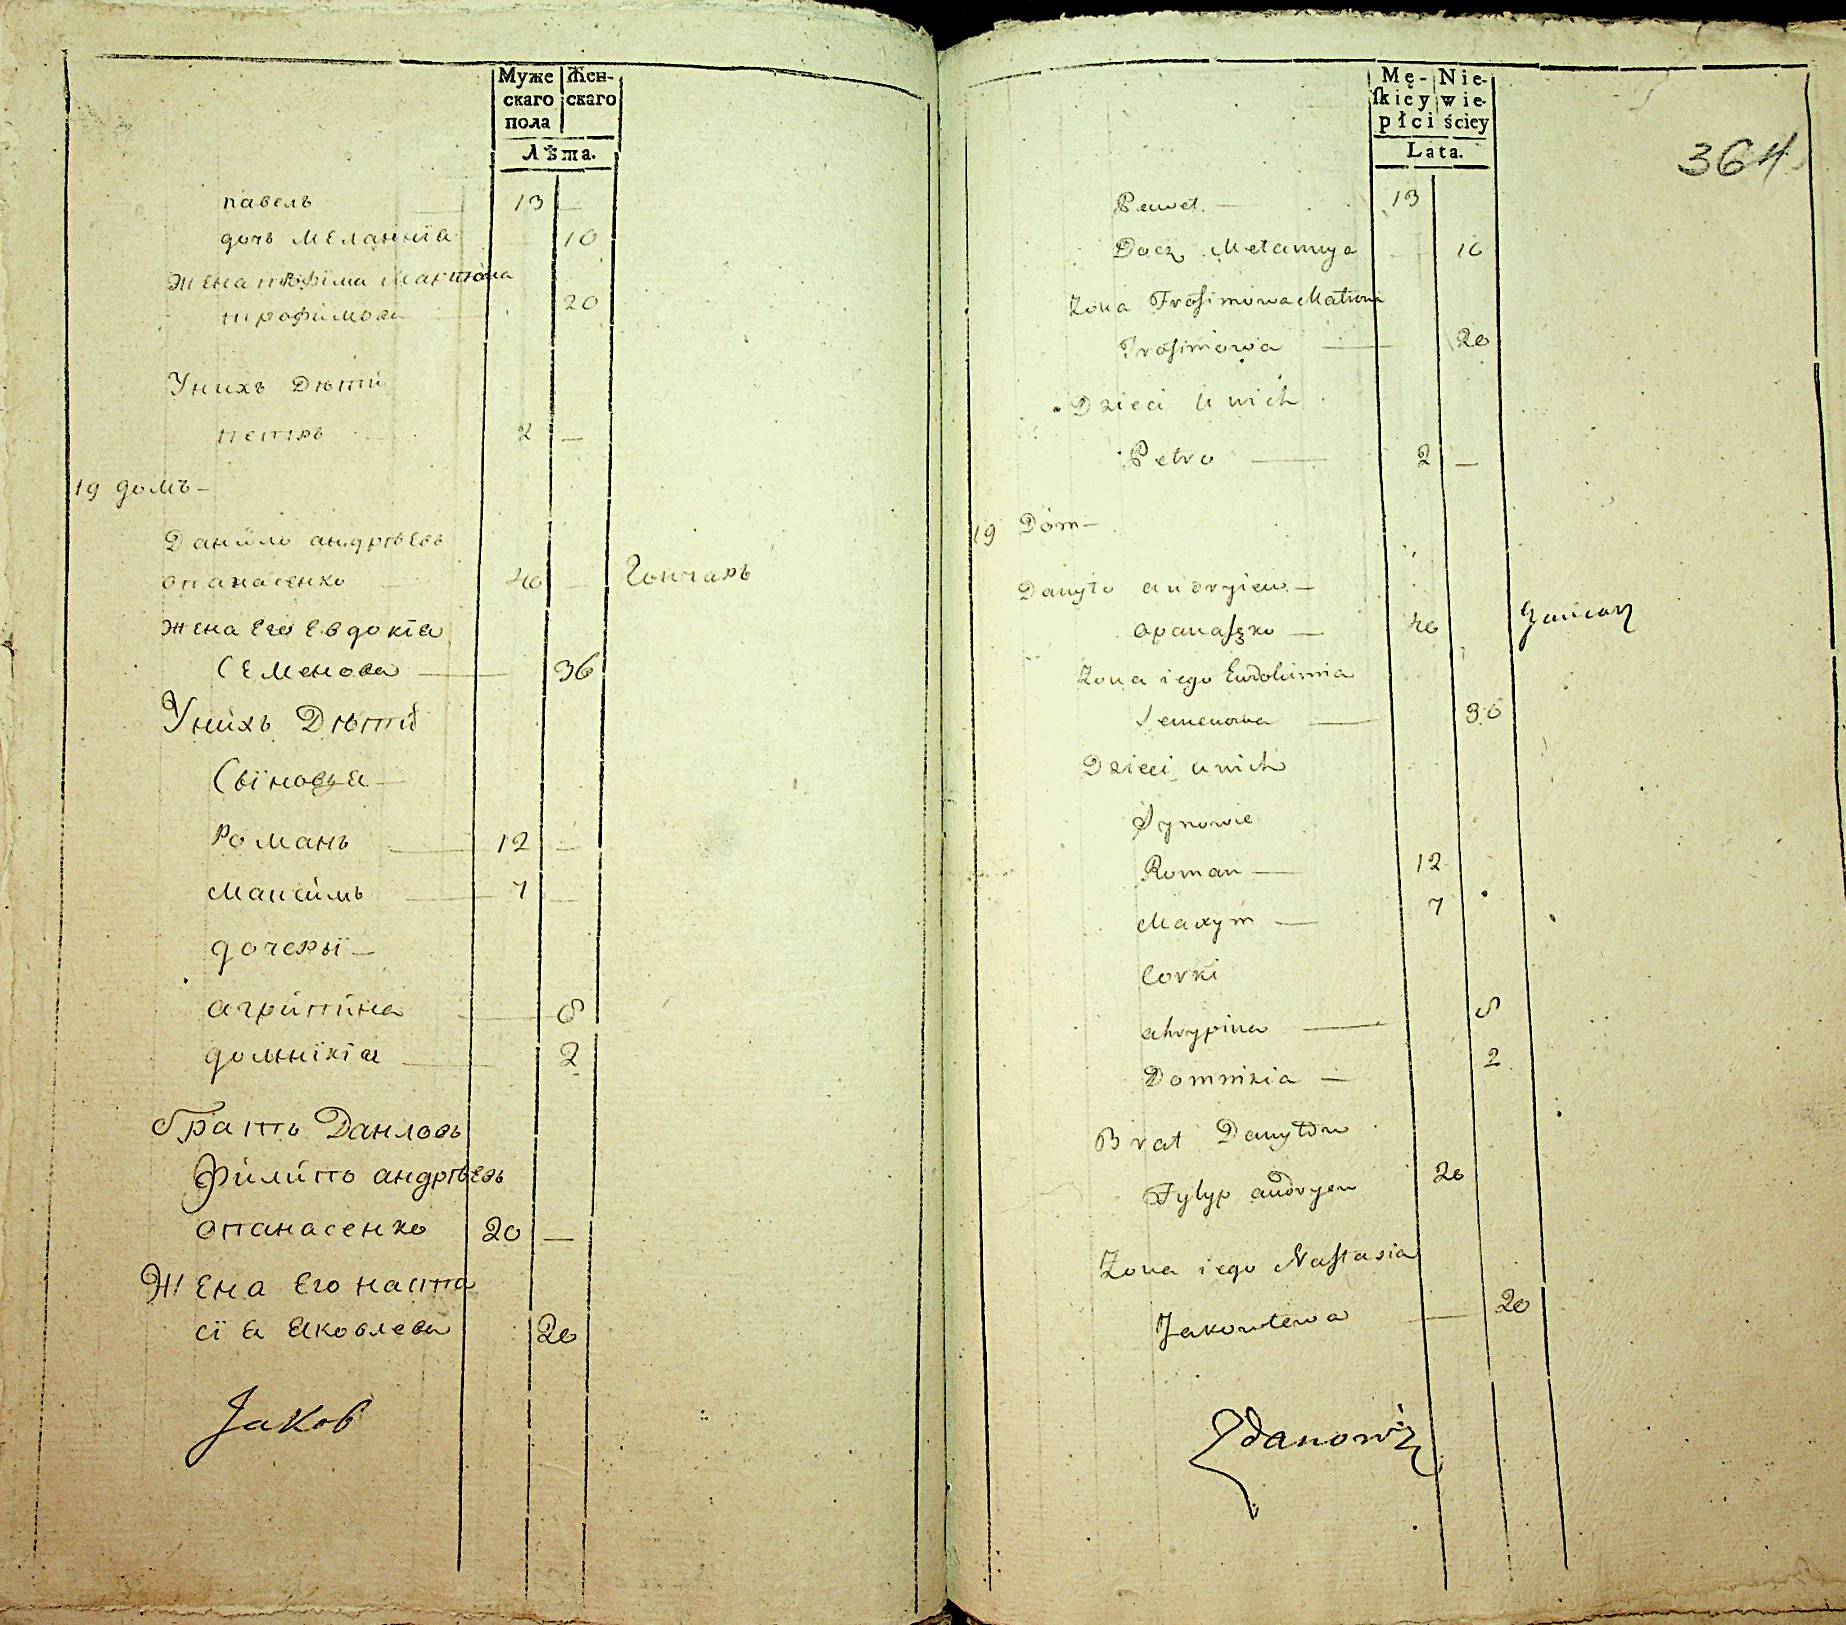 Муже Жен-
скаго скаго
пола
Лѣта.
павелъ 13 —
дочь Меланкїа 10
Жена трофима Матрона
трофимова 20
Унихъ Дѣти
петръ 2 —
19 домъ —
Данило андрѣевъ
опанасенко 40 — Гончаръ
Жена Его Евдокїа
Семенова 36
Унихъ Дѣти
Сыновья
Романъ 12 —
Максимъ 7 —
дочеры —
агрипина 8
домникїа 2
братъ Даниловъ
Филипъ андрѣевъ
опанасенко 20 —
Жена Его наста
сїа Яковлева 20
Jakob
364
Mę- Nie-
ſkiey wie-
płci ściey
Lata.
Pawel 13
Docz Melannya 10
Zona Trofimowa Matrona
Trofimowa 20
Dzieci u nich
Petro 2 —
19 Dóm —
Danyło andryiew —
opanaſzko — 40 Gancarz
Zona iego Ewdokimia
Semenowa 36
Dzieci u nich
Synowie
Roman — 12
Maxym — 7
Corki
ahrypina 8
Domnikia — 2
Brat Danyłów
Fylyp andryew 20
Zona iego Naſtasia
Jakowlewa 20
Zdanowiz